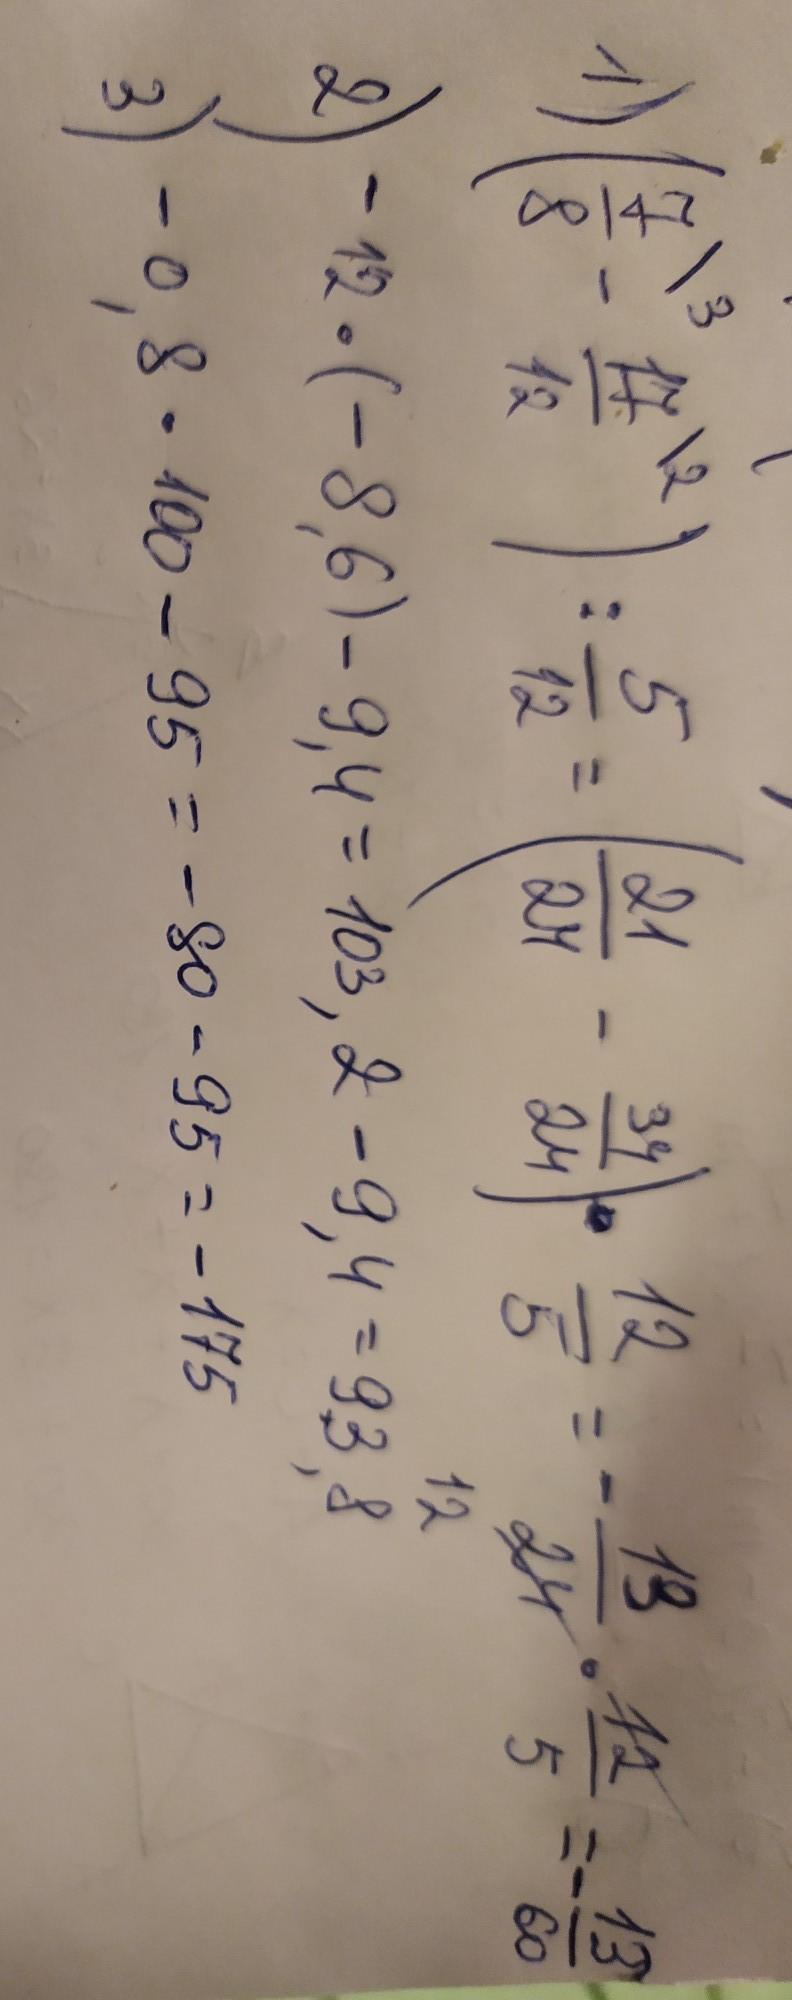 1) (7/8 \3 - 17/12 \2) : 5/12 = (21/24 - 34/24) · 12/5 = - 13/24 · 12/5 = - 13/60
12
2) - 12 · (- 8,6) - 9,4 = 103,2 - 9,4 = 93,8
3) - 0,8 · 100 - 95 = - 80 - 95 = - 175